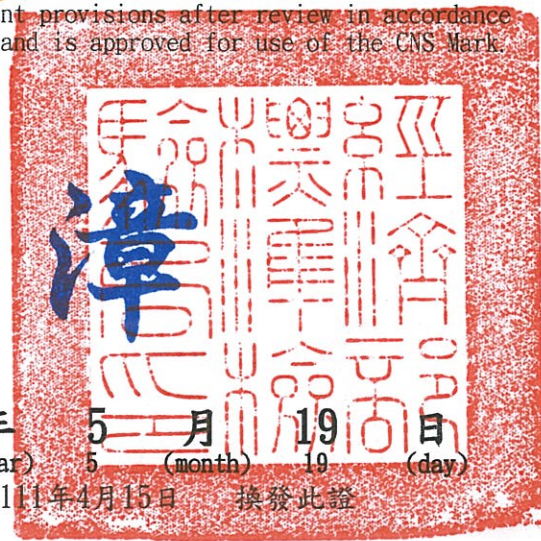 nt provisions after review in accordance
and is approved for use of the CNS Mark.
經濟部
標準檢
驗局印
漳
年 5 月 19 日
ar) 5 (month) 19 (day)
111年4月15日 換發此證